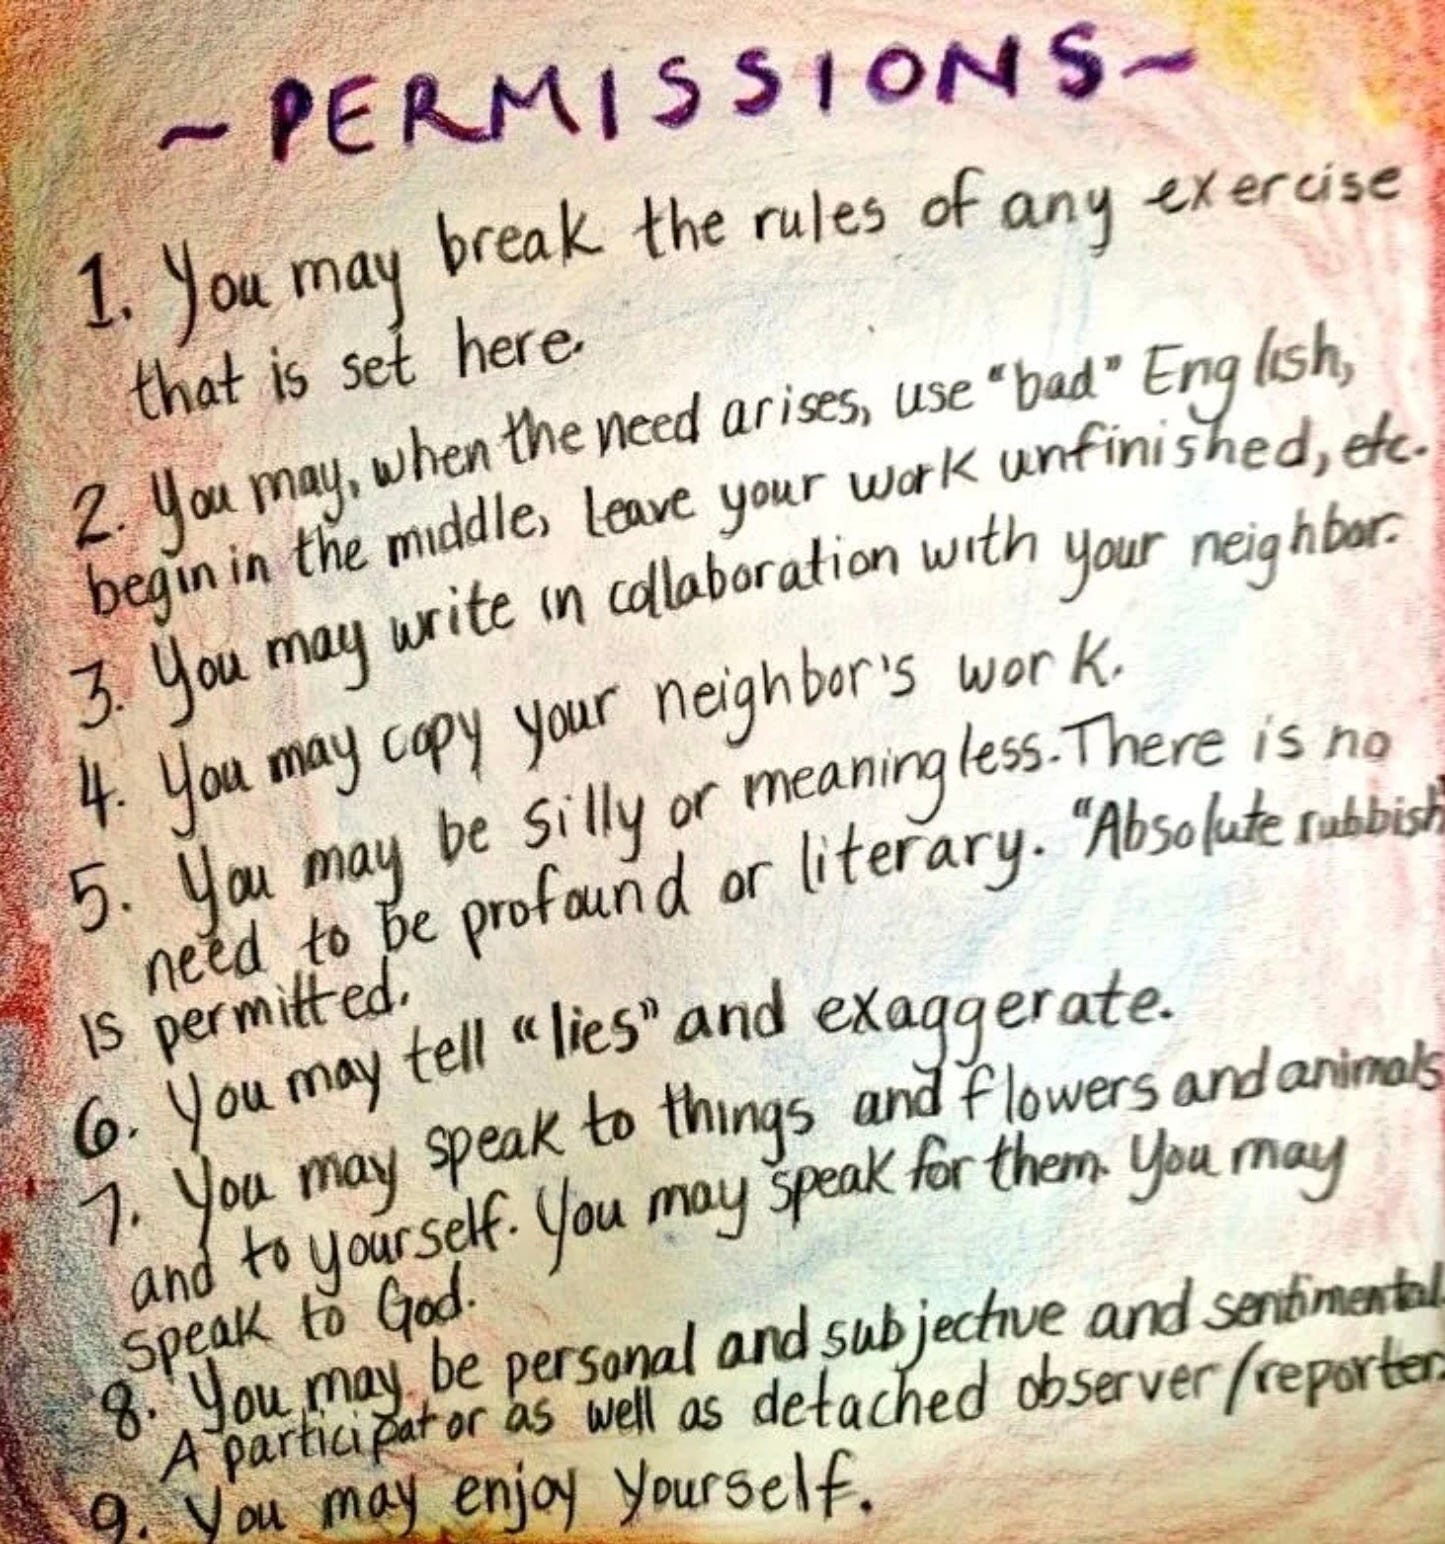 ~PERMISSIONS~
1. You may break the rules of any exercise
that is set here.
2. You may, when the need arises, use "bad" English,
begin in the middle, leave your work unfinished, etc.
3. You may write in collaboration with your neighbor.
4. You may copy your neighbor's work.
5. You may be silly or meaningless. There is no
need to be profound or literary. "Absolute rubbish"
is permitted.
6. You may tell "lies" and exaggerate.
7. You may speak to things and flowers and animals
and to yourself. You may speak for them. You may
speak to God.
8. You may be personal and subjective and sentimental.
A participator as well as detached observer/reporter.
9. You may enjoy yourself.